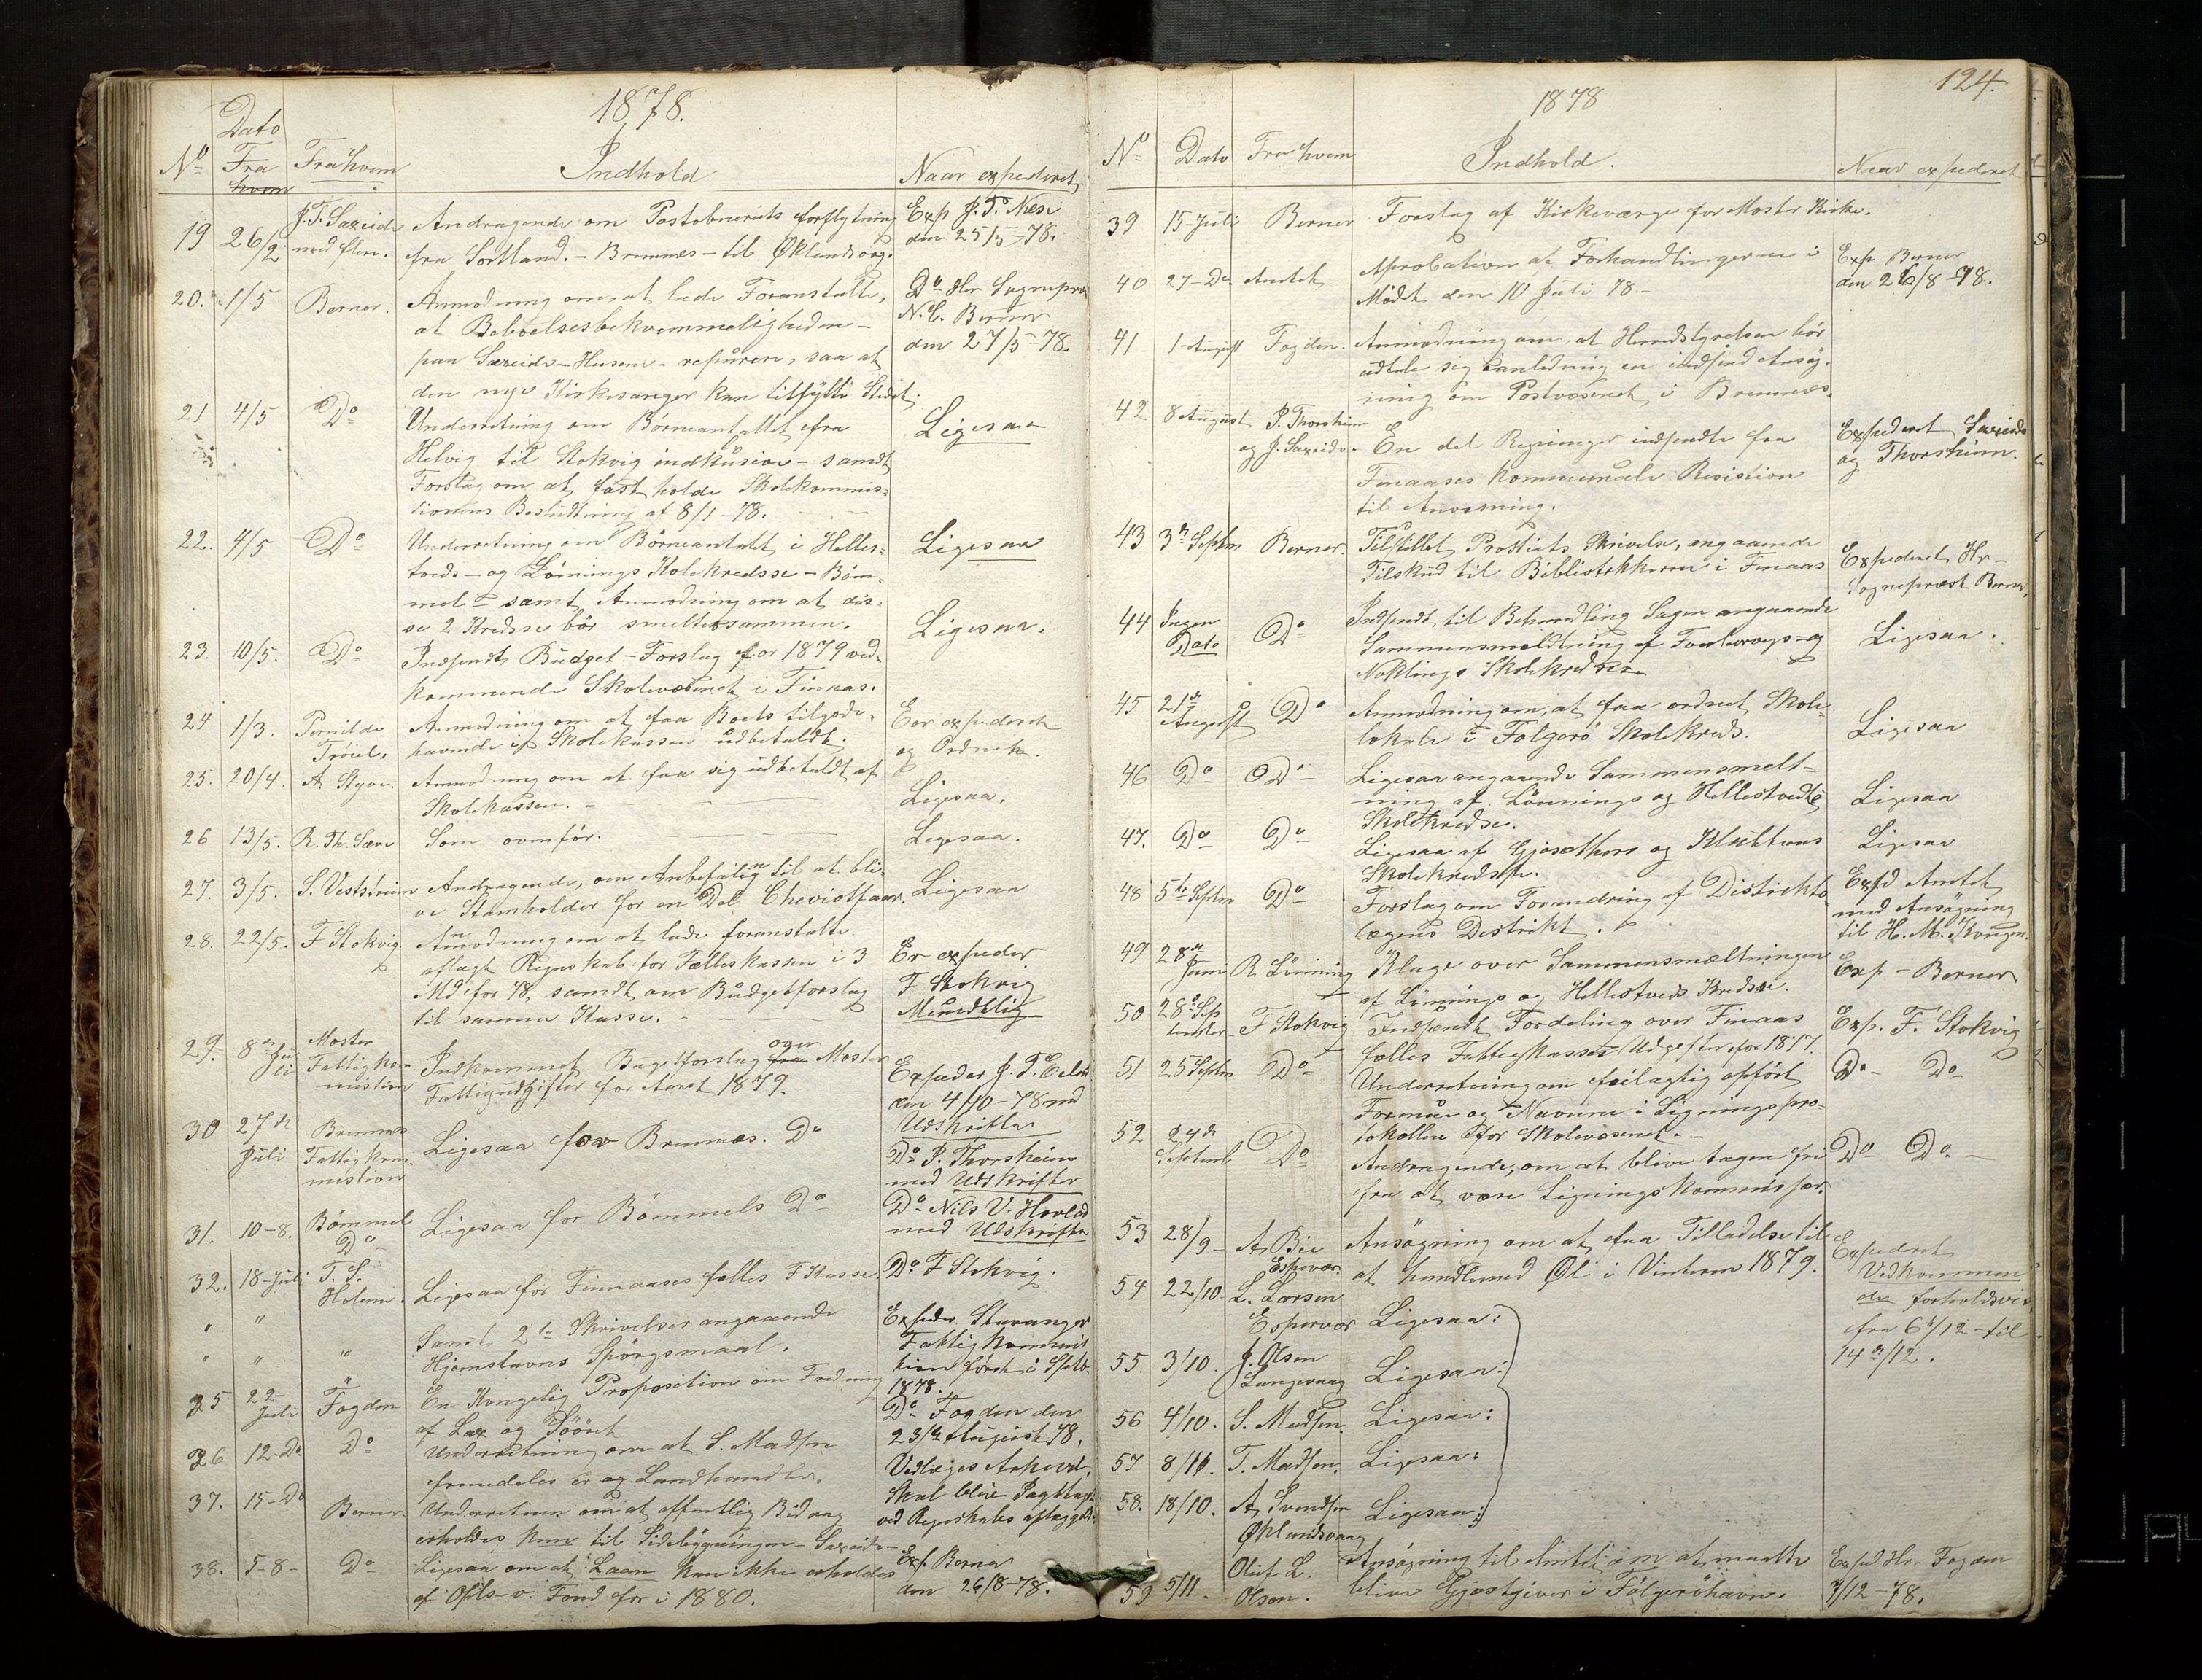 1878.
Dato
No Fra Fra hvem Indhold Naar expederet
hvem
19 26/2 J. T. Saxeide Andragende om Postaabneriets forflytning Exp J. T. Næse
med flere. fra Sortland - Bremnes - til Øklandsvag. den 25/5-78.
20. 1/5 Berner. Anmodning om at lade Foranstalte, Do Hr Sognepr
at Beboelsesbekvemmeligheden - N. C. Berner
paa Saxeide-Husene - repareres, saa at den 27/5-78.
den nye Kirkesanger kan tilflytte Stedet.
21 4/5 Do Underretning om Børneantallet fra Ligesaa
Helvig til Stokvig indklusive - samdt
Forslag om at fastholde Skolekommis-
tionens Beslutning af 8/1-78.
22. 4/5 Do Underretning om Børneantalt i Helles- Ligesaa
tveds - og Lønnings Skolekredsse - Bøm-
mel - samt Anmodning om at dis-
se 2 Kredsse bør smeltes sammen.
23. 10/5. Do Indsendt Budget-Forslag for 1879 ved- Ligesaa.
kommende Skolevæsenet i Finnas.
24 1/3. Pernilde Anmodning om at faa Boets tilgode- Eor expederet
Trøiel. havende if Skolekassen udbetaldt. og Ordnet.
25. 20/4. A Styve. Anmodning om at faa sig udbetaldt af Ligesaa.
Skolekassen.
26 13/5. R. Th. Sæve Som ovenfor. Legesaa.
27. 3/5. S. Vestheim Andragende, om Anbefaling til at bli- Ligesaa
ve Stamholder for en Del Cheviotfaar.
28. 22/5. F Stokvig Anmodning om at lade foranstalte Er expeder
aflagt Regnskab for Fælleskassen i 3 F Stokvig
Md for 78, samdt om Budgetforslag Mundtlig
til samme Kasse.
29. 8de Juli Moster Fattigkommistion Indkommet Bugetforslag over Moster Expeder J. T.
Fattigudgifter for Aaret 1879. den 4/10-78 med
Udskrifter
30 27de Juli Bremnes Fattigkommistion Ligesaa for Bremnæs. Do Do P. Thorsheim
med Udskrifter
31. 10-8. Bømmel Do Ligesaa for Bømmels Do Do Nils V. Hovland
med Udskrifter
32. 18-Juli T. S. Holme. Ligesaa for Finnaases fælles F Kasse. Do F Stokvig.
" " Samt 2de Skrivelser angaaende Expeder Stavanger
" " " Hjemstavns Spørgsmaal. Fattigkommis
tion først i Sptb.
1878.
35 22 Juli Fogden En Kongelig Proposition om Fredning Do Fogden den
af Lax og Søørret 23/de August 78,
36 12-Do Do Underretning om at S. Madsen Vedlægges Arkivet.
fremdeles er og Landhandler.
37. 15-Do Berner. Underretnen om at offentlig Bidrag Skal blive Iagttaget
erholdes kun til Sidebygningen - Saxeide - ved Regnskabs aflæggelse.
38. 5-8- Do Ligesaa om at Laan kan ikke erholdes Exp Berner
af Opls- v. Fond for i 1880. den 26/8-78.
124.
1878
No Dato Fra hvem Indhold. Naar expederet
39 15-Juli Berner Forslag af Kirkeværge for Moster Kirke.
40 27-Do Amtet Aprobation af Forhandlingerne i Exp Berner
Mødt den 10 Juli 78- den 26/8-78.
41- 1-August Fogden. Anmodning om, at Herredstyrelsen bør
udtale sig i anledning en indsend Ansøg-
ning om Postvæsenet i Bremnæs.
42 8 August P. Thorsheim
og J. Saxeide. En del Regninger indsendte fra Expederet Saxeide
Finaases Kommunale Revistion og Thorsheim.
til Anvisning.
43 3de Septm. Berner. Tilstillet Provstiets Skrivelse, angaaende Expederet Hr-
Tilskud til Bibliotekkerne i Finaas Sognepræst Berner.
44 Ingen Dato Do Indsendt til Behandling Sagen angaaende
Sammensmeldtning af og Ligesaa.
Nøklings Skolekredsse
45 21de August Do Anmodning om, at faa ordnet Skole-
lokale i Folgerø Skolekreds. Ligesaa
46 Do Do Ligesaa angaaende Sammensmelt-
ning af Lønnings og Hellestvedts Ligesaa
Skolekredse.
47. Do Do Ligesaa af Gjosæthers og Klubbens Ligesaa
Skolekredse.
48 5te Septm Do Forslag om Forandring af Distrikts Expd Amtet
lægens Distrikt. med Ansøgning
til H. M. Kongen.
49 28de Juni R Lønning Klage over Sammensmæltningen Exp - Berner
af Lønnings og Hellestveds Kredsse.
50 28de Septembr F Stokvig Indsendt Fordeling over Finaas Exp. F. Stokvig
fælles Fattigkasses Udgifter for 1877.
51 25 Septm Do Underretning om feilagtig opført Do Do
Formue og Navnene i Ligningspro-
tokollen for Skolevæsenet.
52 24de Septemb Do Andragende, om at blive tagen fri Do Do.
fra at være Ligningskommissær.
53 28/9- A, Bie Espevær. Ansøgning om at faa Tilladelse til Expederet
at handle med Øl i Vinteren 1879. Vedkommen
54 22/10 L. Larsen Espevær Ligesaa: de forholdsvis
fra 6te/12-til
55 3/10. J. Olsen Langevaag Ligesaa: 14de/12.
56 4/10. S. Madsen. Ligesaa:
57 8/11. T. Madsen. Ligesaa:
58. 18/10. A, Svendsen Øklandsvaag Ligesaa:
59 5/11. Oluf L. Olsen. Ansøgning til Amtet om at maatte Exped Hr- Fogden
blive Gjæstgiver i Følgerøhavn. 7/12-78.